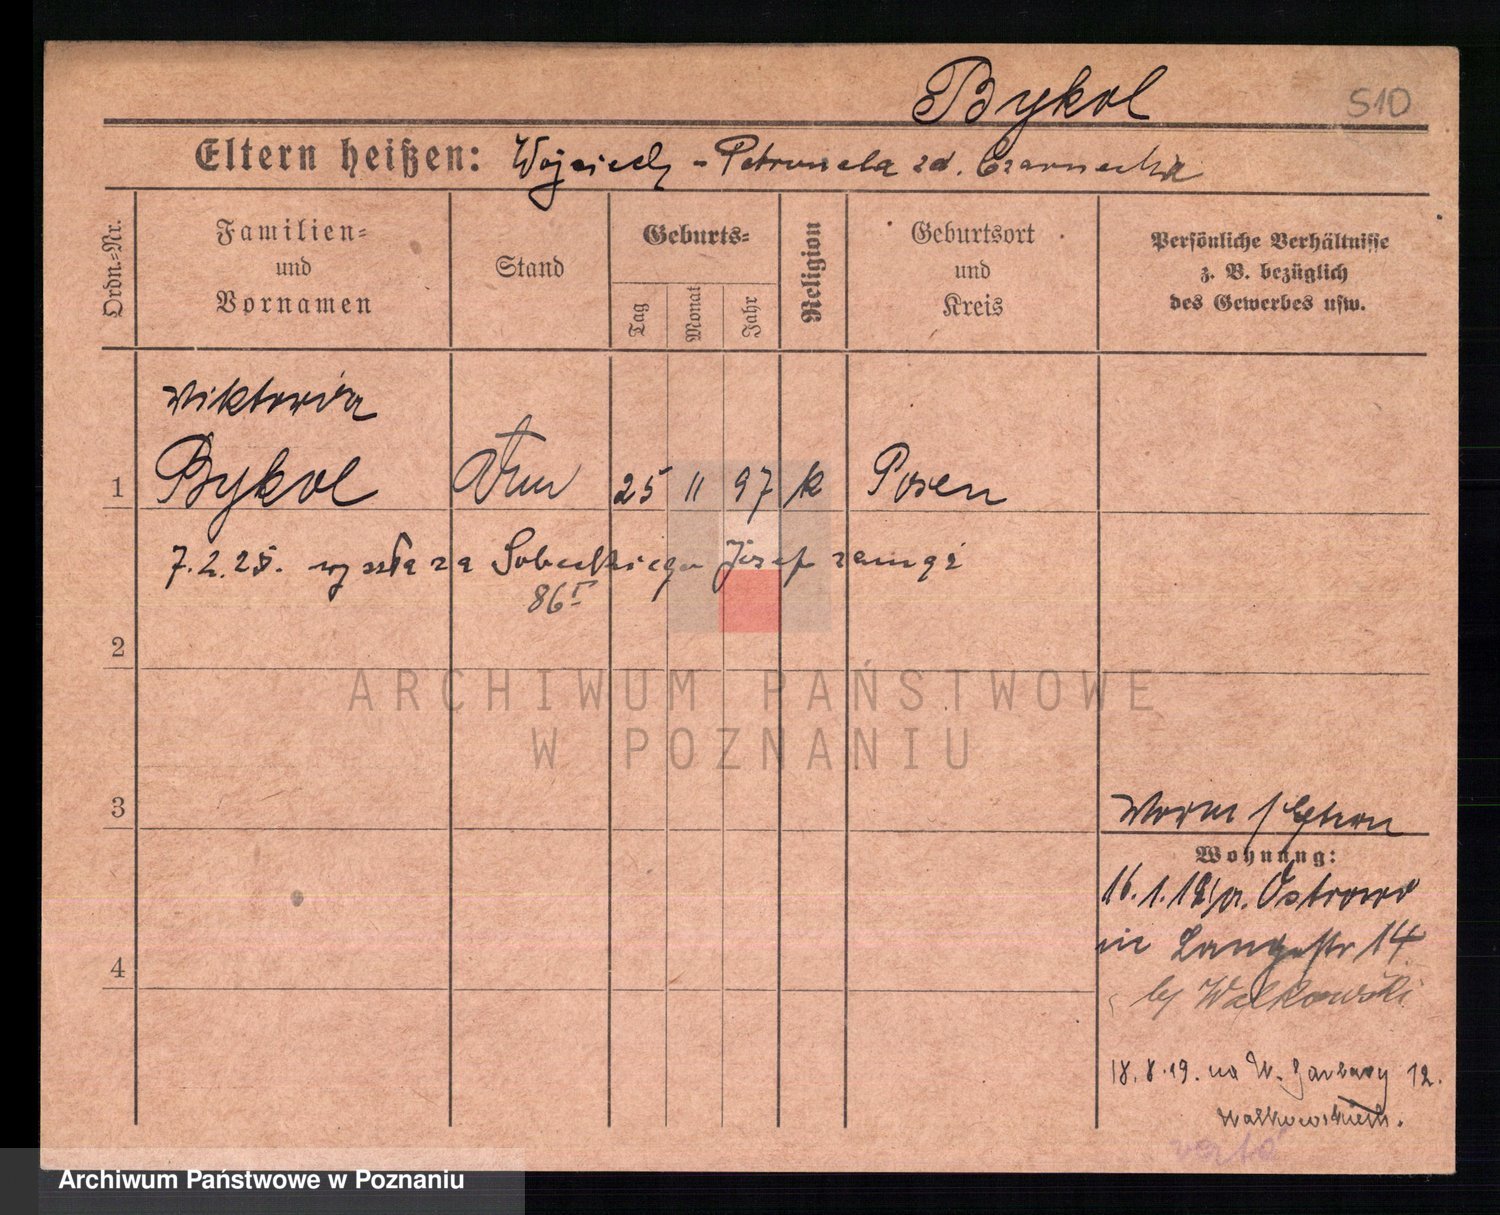 Bykol
S10
Eltern heißen: Wojciech - Petronela zd. Czarnecka
Ordn.-Nr.
Familien- und Vornamen
Stand
Geburts-
Tag
Monat
Jahr
Religion
Geburtsort und Kreis
Persönliche Verhältnisse
z. B. bezüglich
des Gewerbes usw.
Viktoria
1 Bykol 25 11 97 k Posen
7.2.25. wyszła za Sobeckiego Józef zamąż
86
2
ARCHIWUM PAŃSTWOWE
W POZNANIU
3
Wohnung:
16.1.19 a. Ostrowo
in Langestr 14
by Walkowski
4
18.8.19. na W. Garbary 12.
Walkowskich.
Archiwum Państwowe w Poznaniu